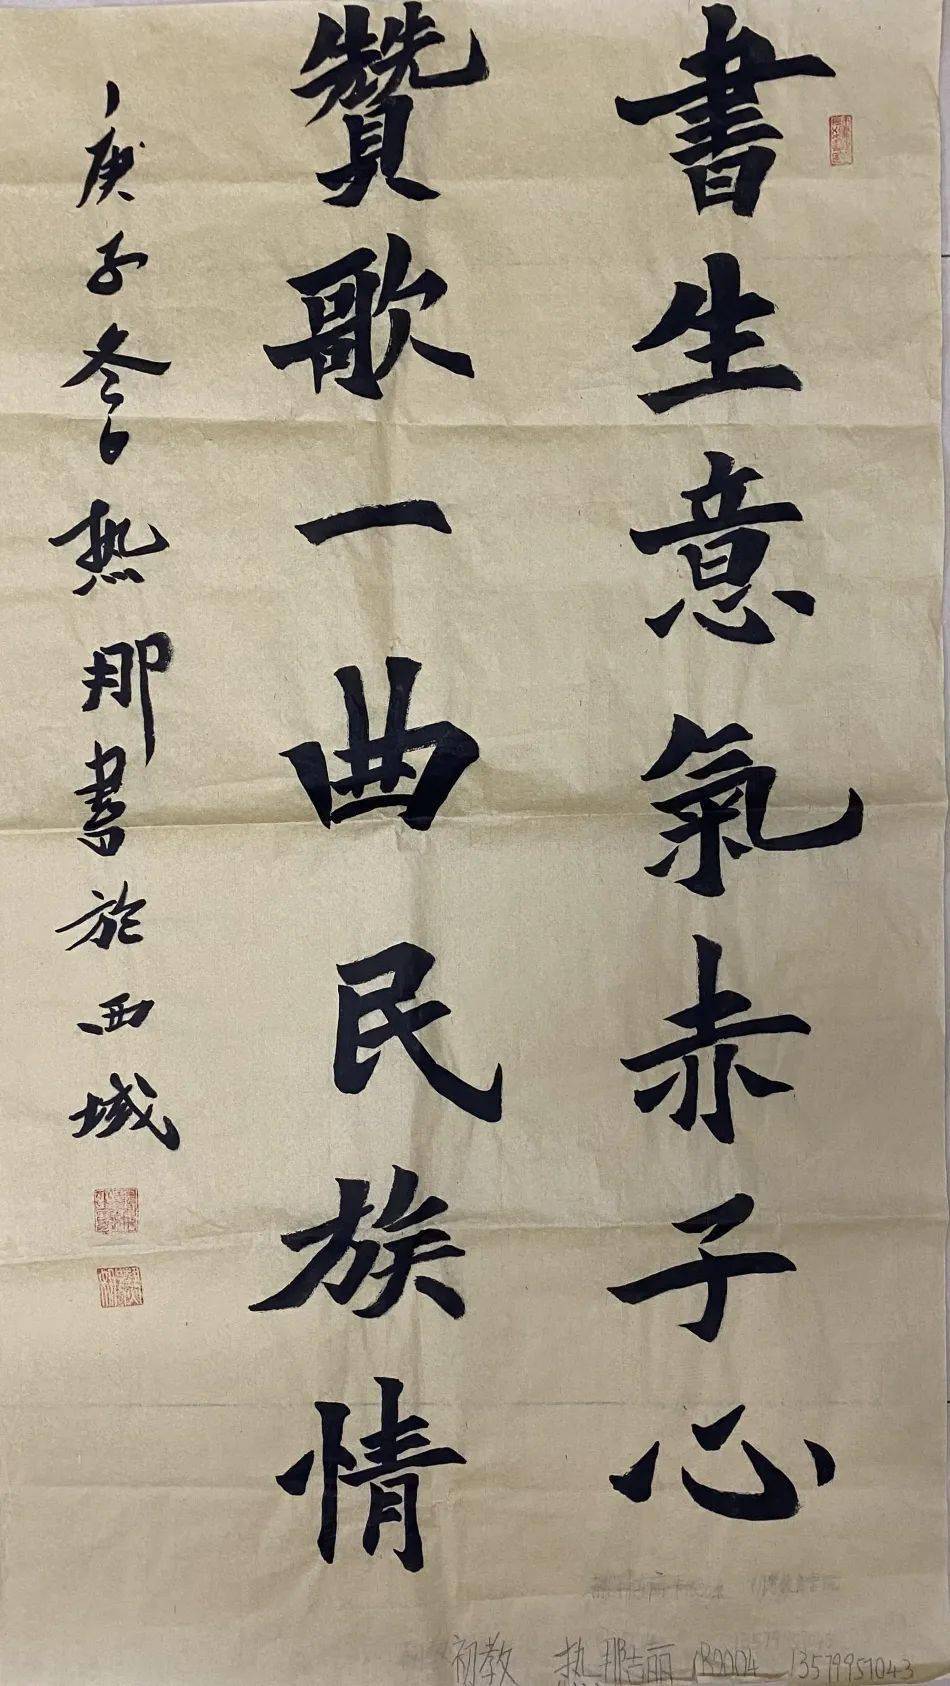 書生意氣赤子心
贊歌一曲民族情
庚子冬日热那書於西域
初教 热那吉丽 13579957043